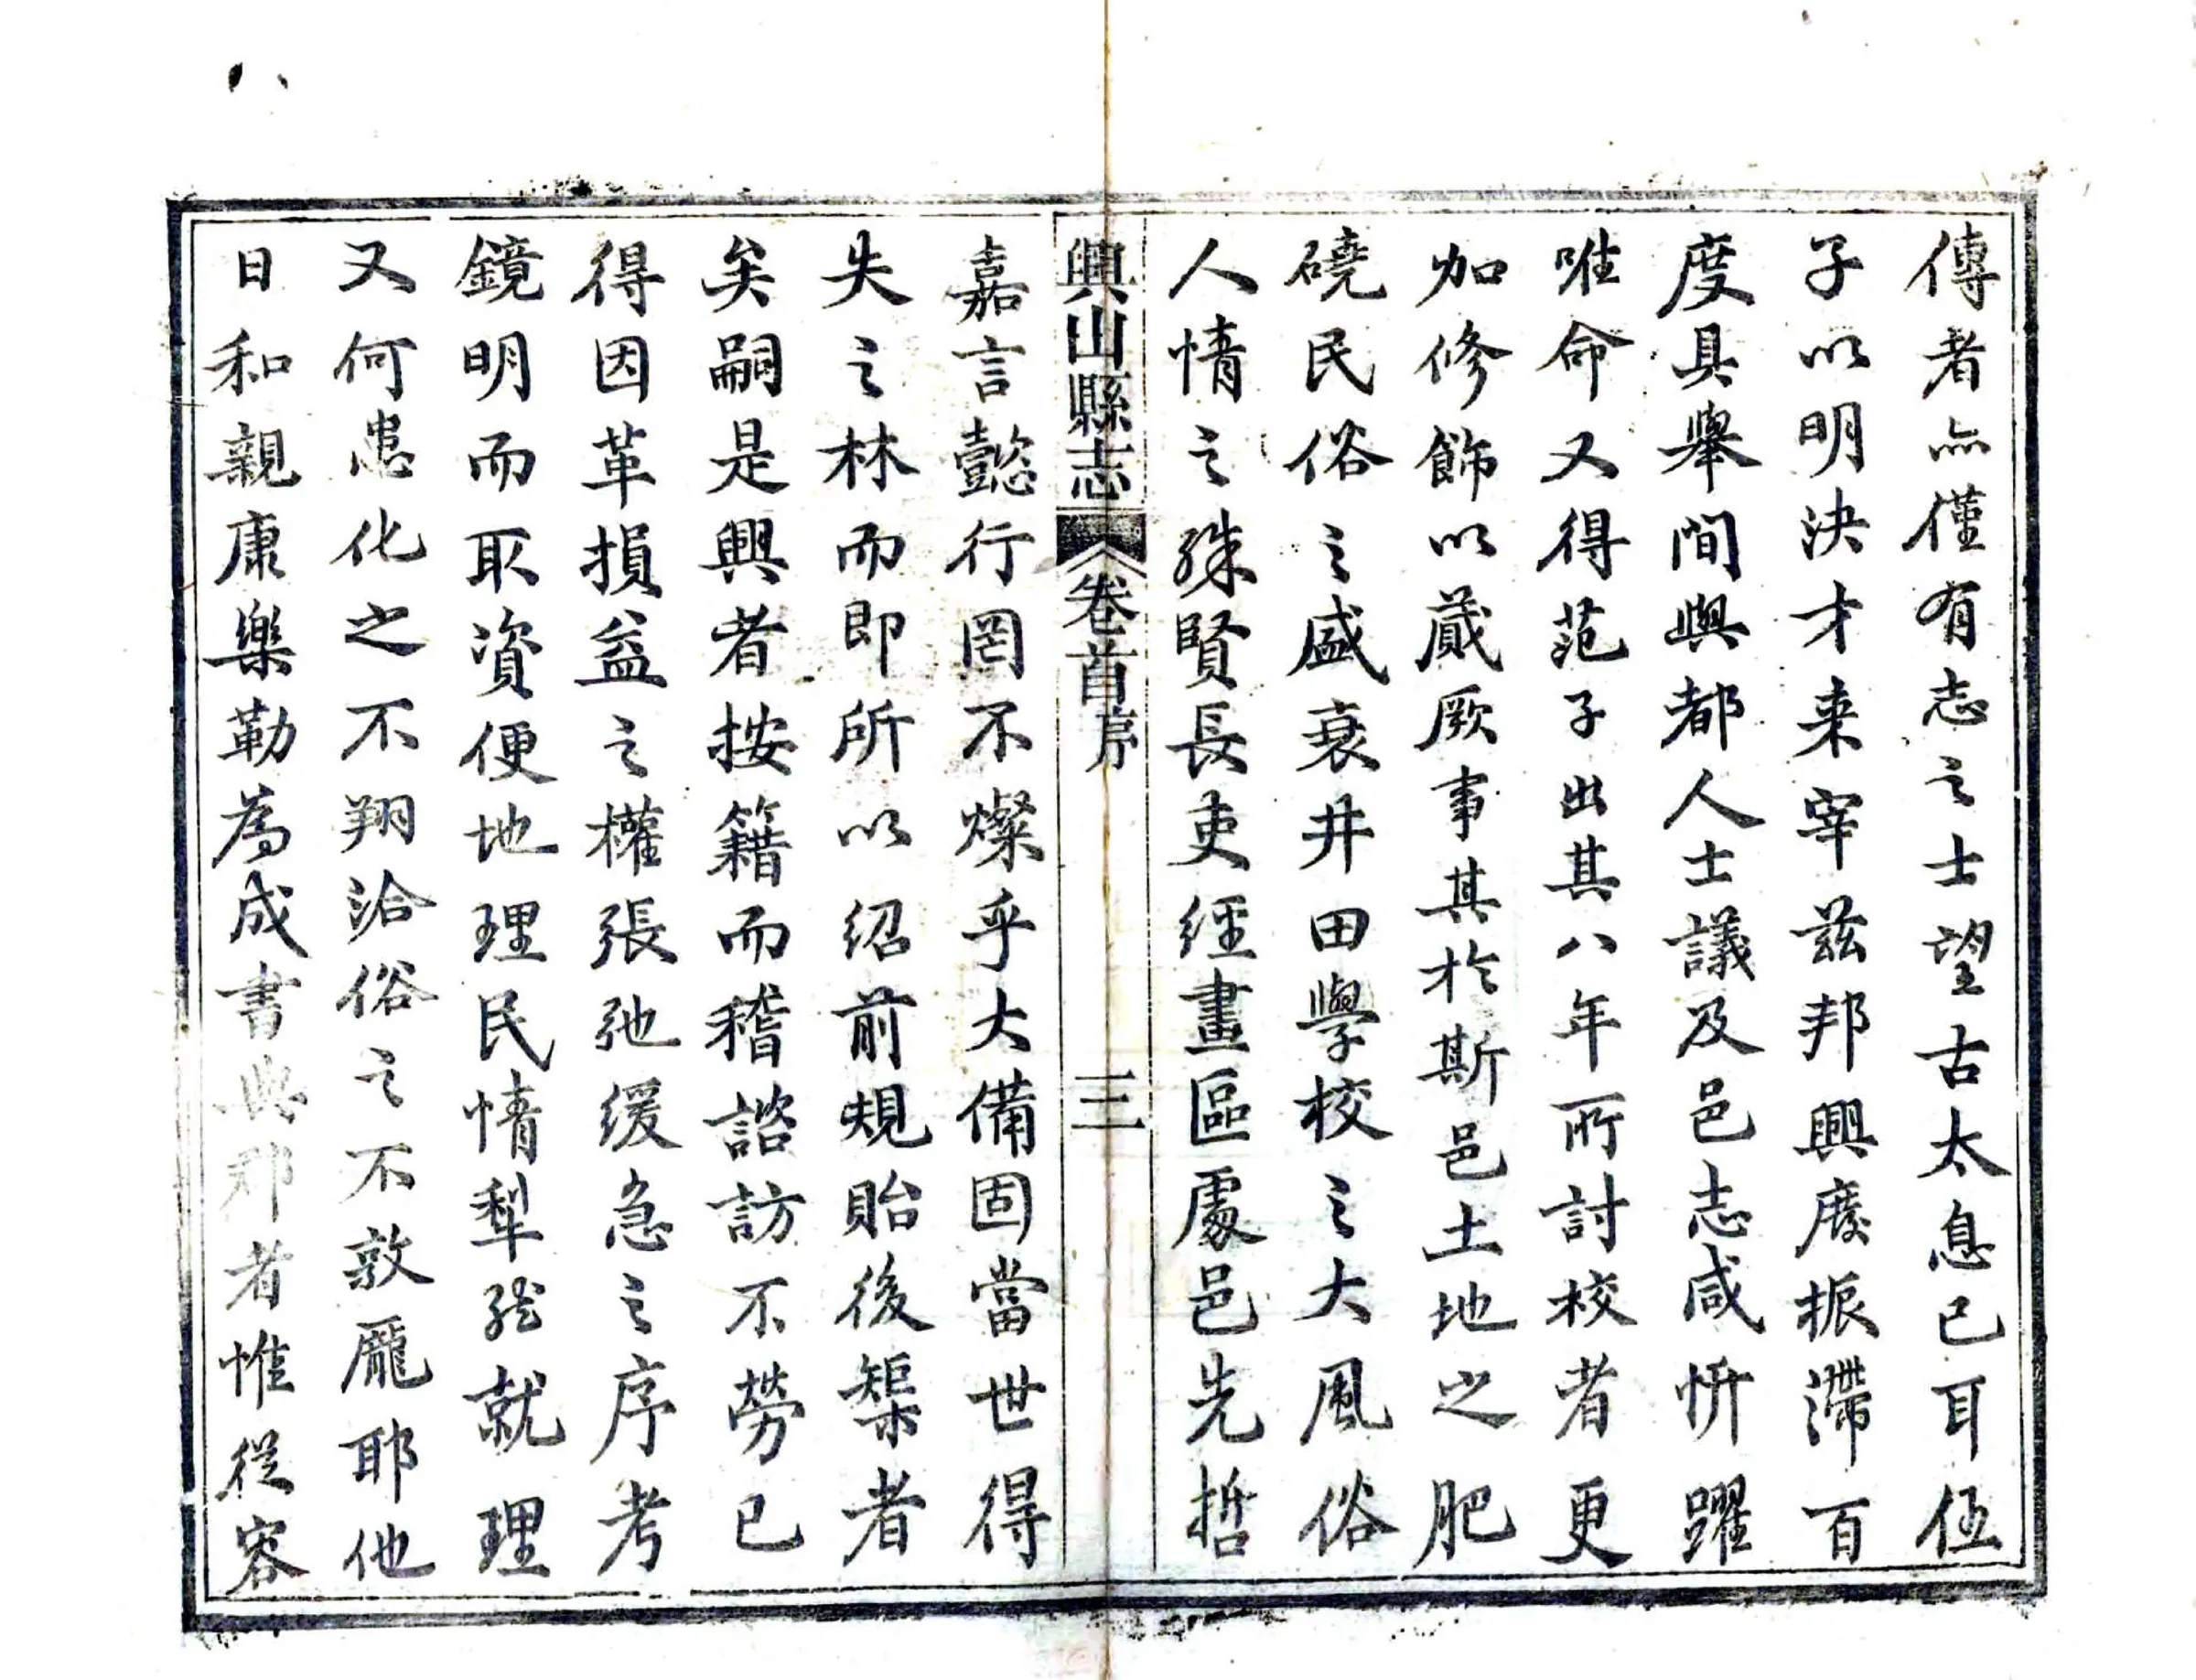 傳者亦僅有志之士望古太息已耳伍
子以明決才来宰茲邦興廢振滯百
度具舉間與都人士議及邑志咸忻躍
唯命又得范子出其八年所討校者更
加修飾以蕆厥事其於斯邑土地之肥
磽民俗之盛衰井田學校之大風俗
人情之殊賢長吏經畫區處邑先哲
興山縣志 卷首序 三
嘉言懿行罔不燦乎大備固當世得
失之林而即所以紹前規貽後榘者
矣嗣是興者按籍而稽諮訪不勞已
得因革損益之權張弛緩急之序考
鏡明而取資便地理民情犁然就理
又何患化之不翔洽俗之不敦龐耶他
日和親康樂勒為成書典郡者惟從容